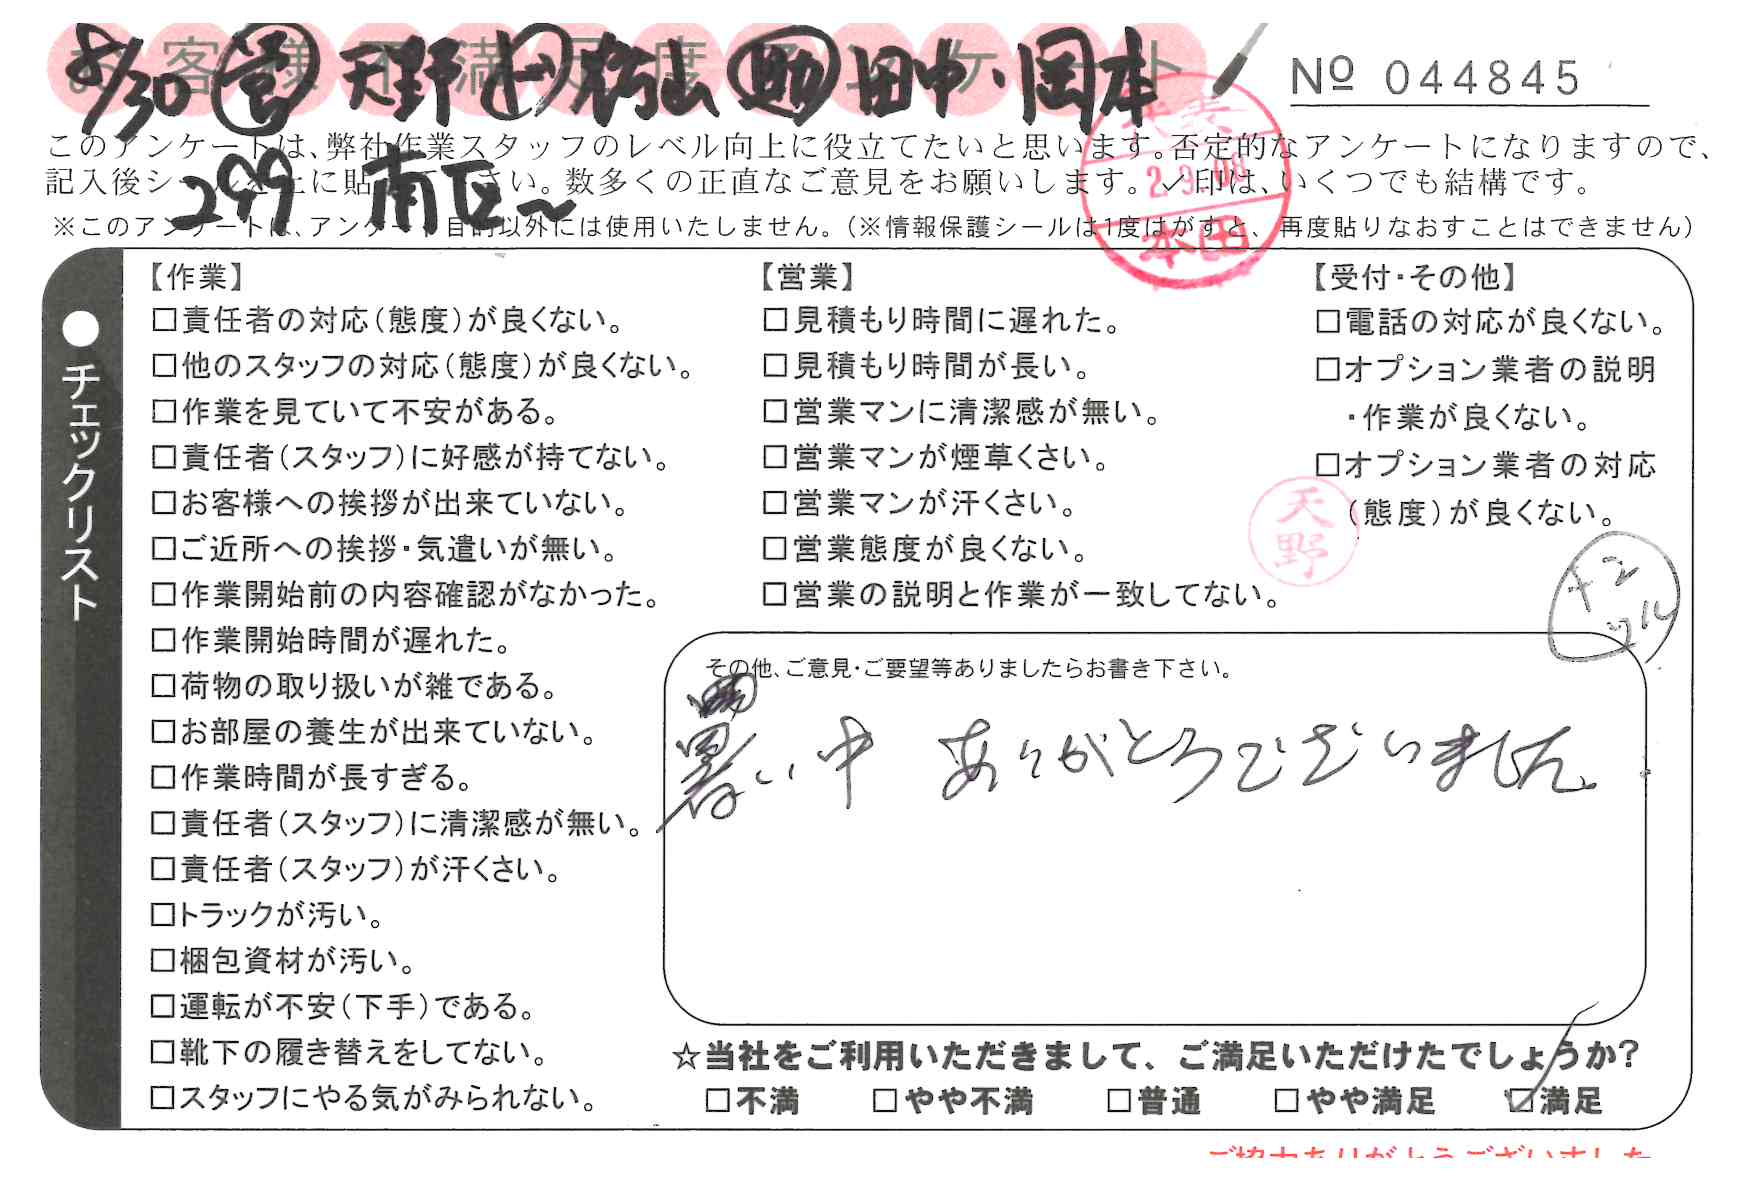 お客様不満足度アンケート
8/30 営 天野 ド 杉山 助 田中・岡本
No 044845
このアンケートは、弊社作業スタッフのレベル向上に役立てたいと思います。否定的なアンケートになりますので、
記入後シールを上に貼って下さい。数多くの正直なご意見をお願いします。✓印は、いくつでも結構です。
299 南区〜
※このアンケートは、アンケート目的以外には使用いたしません。（※情報保護シールは1度はがすと、再度貼りなおすことはできません）
本田
●チェックリスト
【作業】
□責任者の対応（態度）が良くない。
□他のスタッフの対応（態度）が良くない。
□作業を見ていて不安がある。
□責任者（スタッフ）に好感が持てない。
□お客様への挨拶が出来ていない。
□ご近所への挨拶・気遣いが無い。
□作業開始前の内容確認がなかった。
□作業開始時間が遅れた。
□荷物の取り扱いが雑である。
□お部屋の養生が出来ていない。
□作業時間が長すぎる。
□責任者（スタッフ）に清潔感が無い。
□責任者（スタッフ）が汗くさい。
□トラックが汚い。
□梱包資材が汚い。
□運転が不安（下手）である。
□靴下の履き替えをしてない。
□スタッフにやる気がみられない。
【営業】
□見積もり時間に遅れた。
□見積もり時間が長い。
□営業マンに清潔感が無い。
□営業マンが煙草くさい。
□営業マンが汗くさい。
□営業態度が良くない。
□営業の説明と作業が一致してない。
【受付・その他】
□電話の対応が良くない。
□オプション業者の説明
・作業が良くない。
□オプション業者の対応
（態度）が良くない。
天野
その他、ご意見・ご要望等ありましたらお書き下さい。
暑い中 ありがとうございました。
☆当社をご利用いただきまして、ご満足いただけたでしょうか？
□不満 □やや不満 □普通 □やや満足 ☑満足
ご協力ありがとうございました